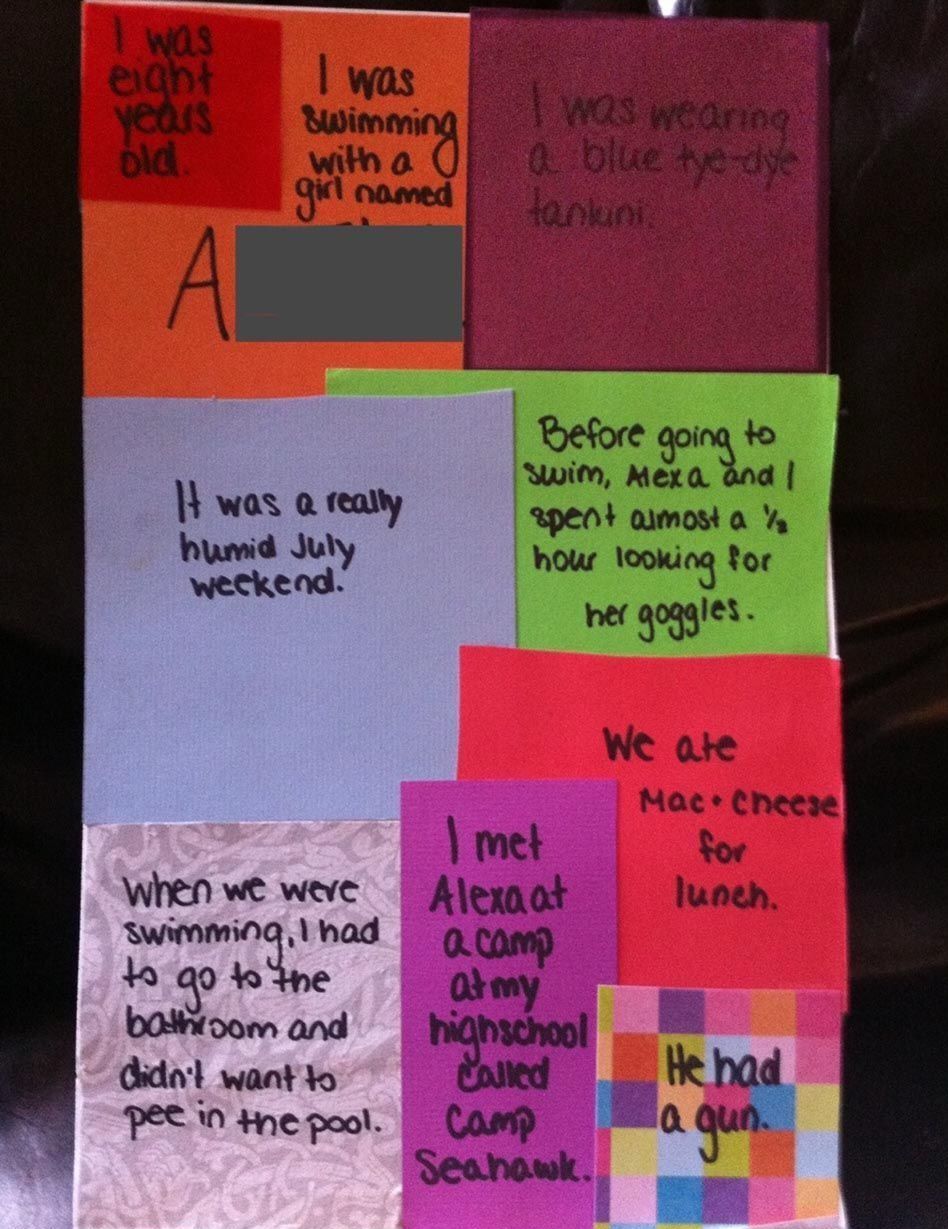 I was
eight
years
old.
I was
swimming
with a
girl named
A
I was wearing
a blue tye-dye
tankini.
It was a really
humid July
weekend.
Before going to
swim, Alexa and I
spent almost a 1/2
hour looking for
her goggles.
We ate
Mac + Cheese
for
lunch.
When we were
swimming, I had
to go to the
bathroom and
didn't want to
pee in the pool.
I met
Alexa at
a camp
at my
highschool
called
Camp
Seahawk.
He had
a gun.